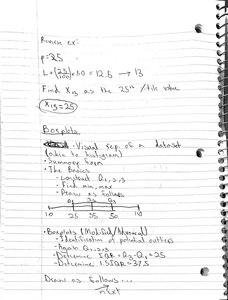 Review ex:
p=25
L=(25/100)·50 = 12.5 → 13
Find X13 as the 25th %tile value
X13=25
Boxplots
· Visual rep. of a dataset
(akin to histogram)
· Summary form
· The Basics
- Construct Q1,2,3
- Find min, max
- Draw as follows
Q1 Q2 Q3
10 25 35 50
· Boxplots (Modified/Advanced)
- Identification of potential outliers
- Again Q1,2,3
- Determine IQR = Q3-Q1 = 25
- Determine 1.5IQR = 37.5
Draw as follows...
→ next